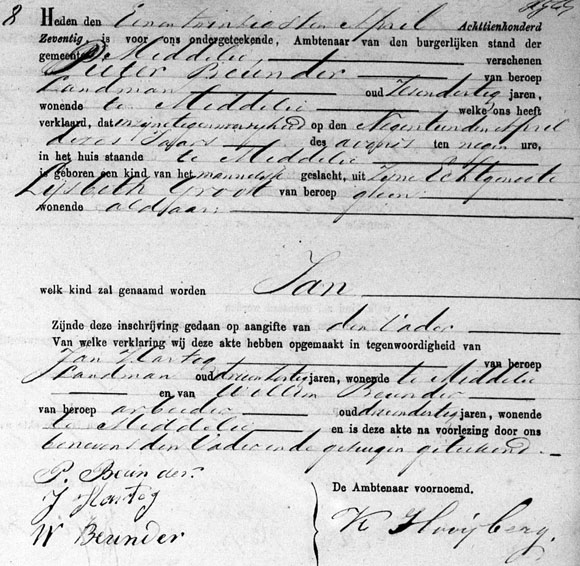 8 Heden den Eenentwintigsten April Achttienhonderd
Zeventig, is voor ons ondergeteekende, Ambtenaar van den burgerlijken stand der
gemeente Middelie, verschenen
Pieter Beunder van beroep
Landman oud Zesendertig jaren,
wonende te Middelie, welke ons heeft
verklaard, dat in zijne tegenwoordigheid op den Negentienden April
dezes Jaars des avonds ten negen ure,
in het huis staande te Middelie
is geboren een kind van het mannelijk geslacht, uit Zijne Echtgenoote
Lijsbeth Groot van beroep geen
wonende aldaar;
welk kind zal genaamd worden Jan
Zijnde deze inschrijving gedaan op aangifte van den Vader
Van welke verklaring wij deze akte hebben opgemaakt in tegenwoordigheid van
Jan Hartog van beroep
Landman oud jaren, wonende te Middelie
en van Willem Beunder
van beroep arbeider oud drieendertig jaren, wonende
te Middelie, en is deze akte na voorlezing door ons
benevens den Vader en de getuigen geteekend.
P. Beunder.
J Hartog
W Beunder
De Ambtenaar voornoemd.
K Hooijberg.